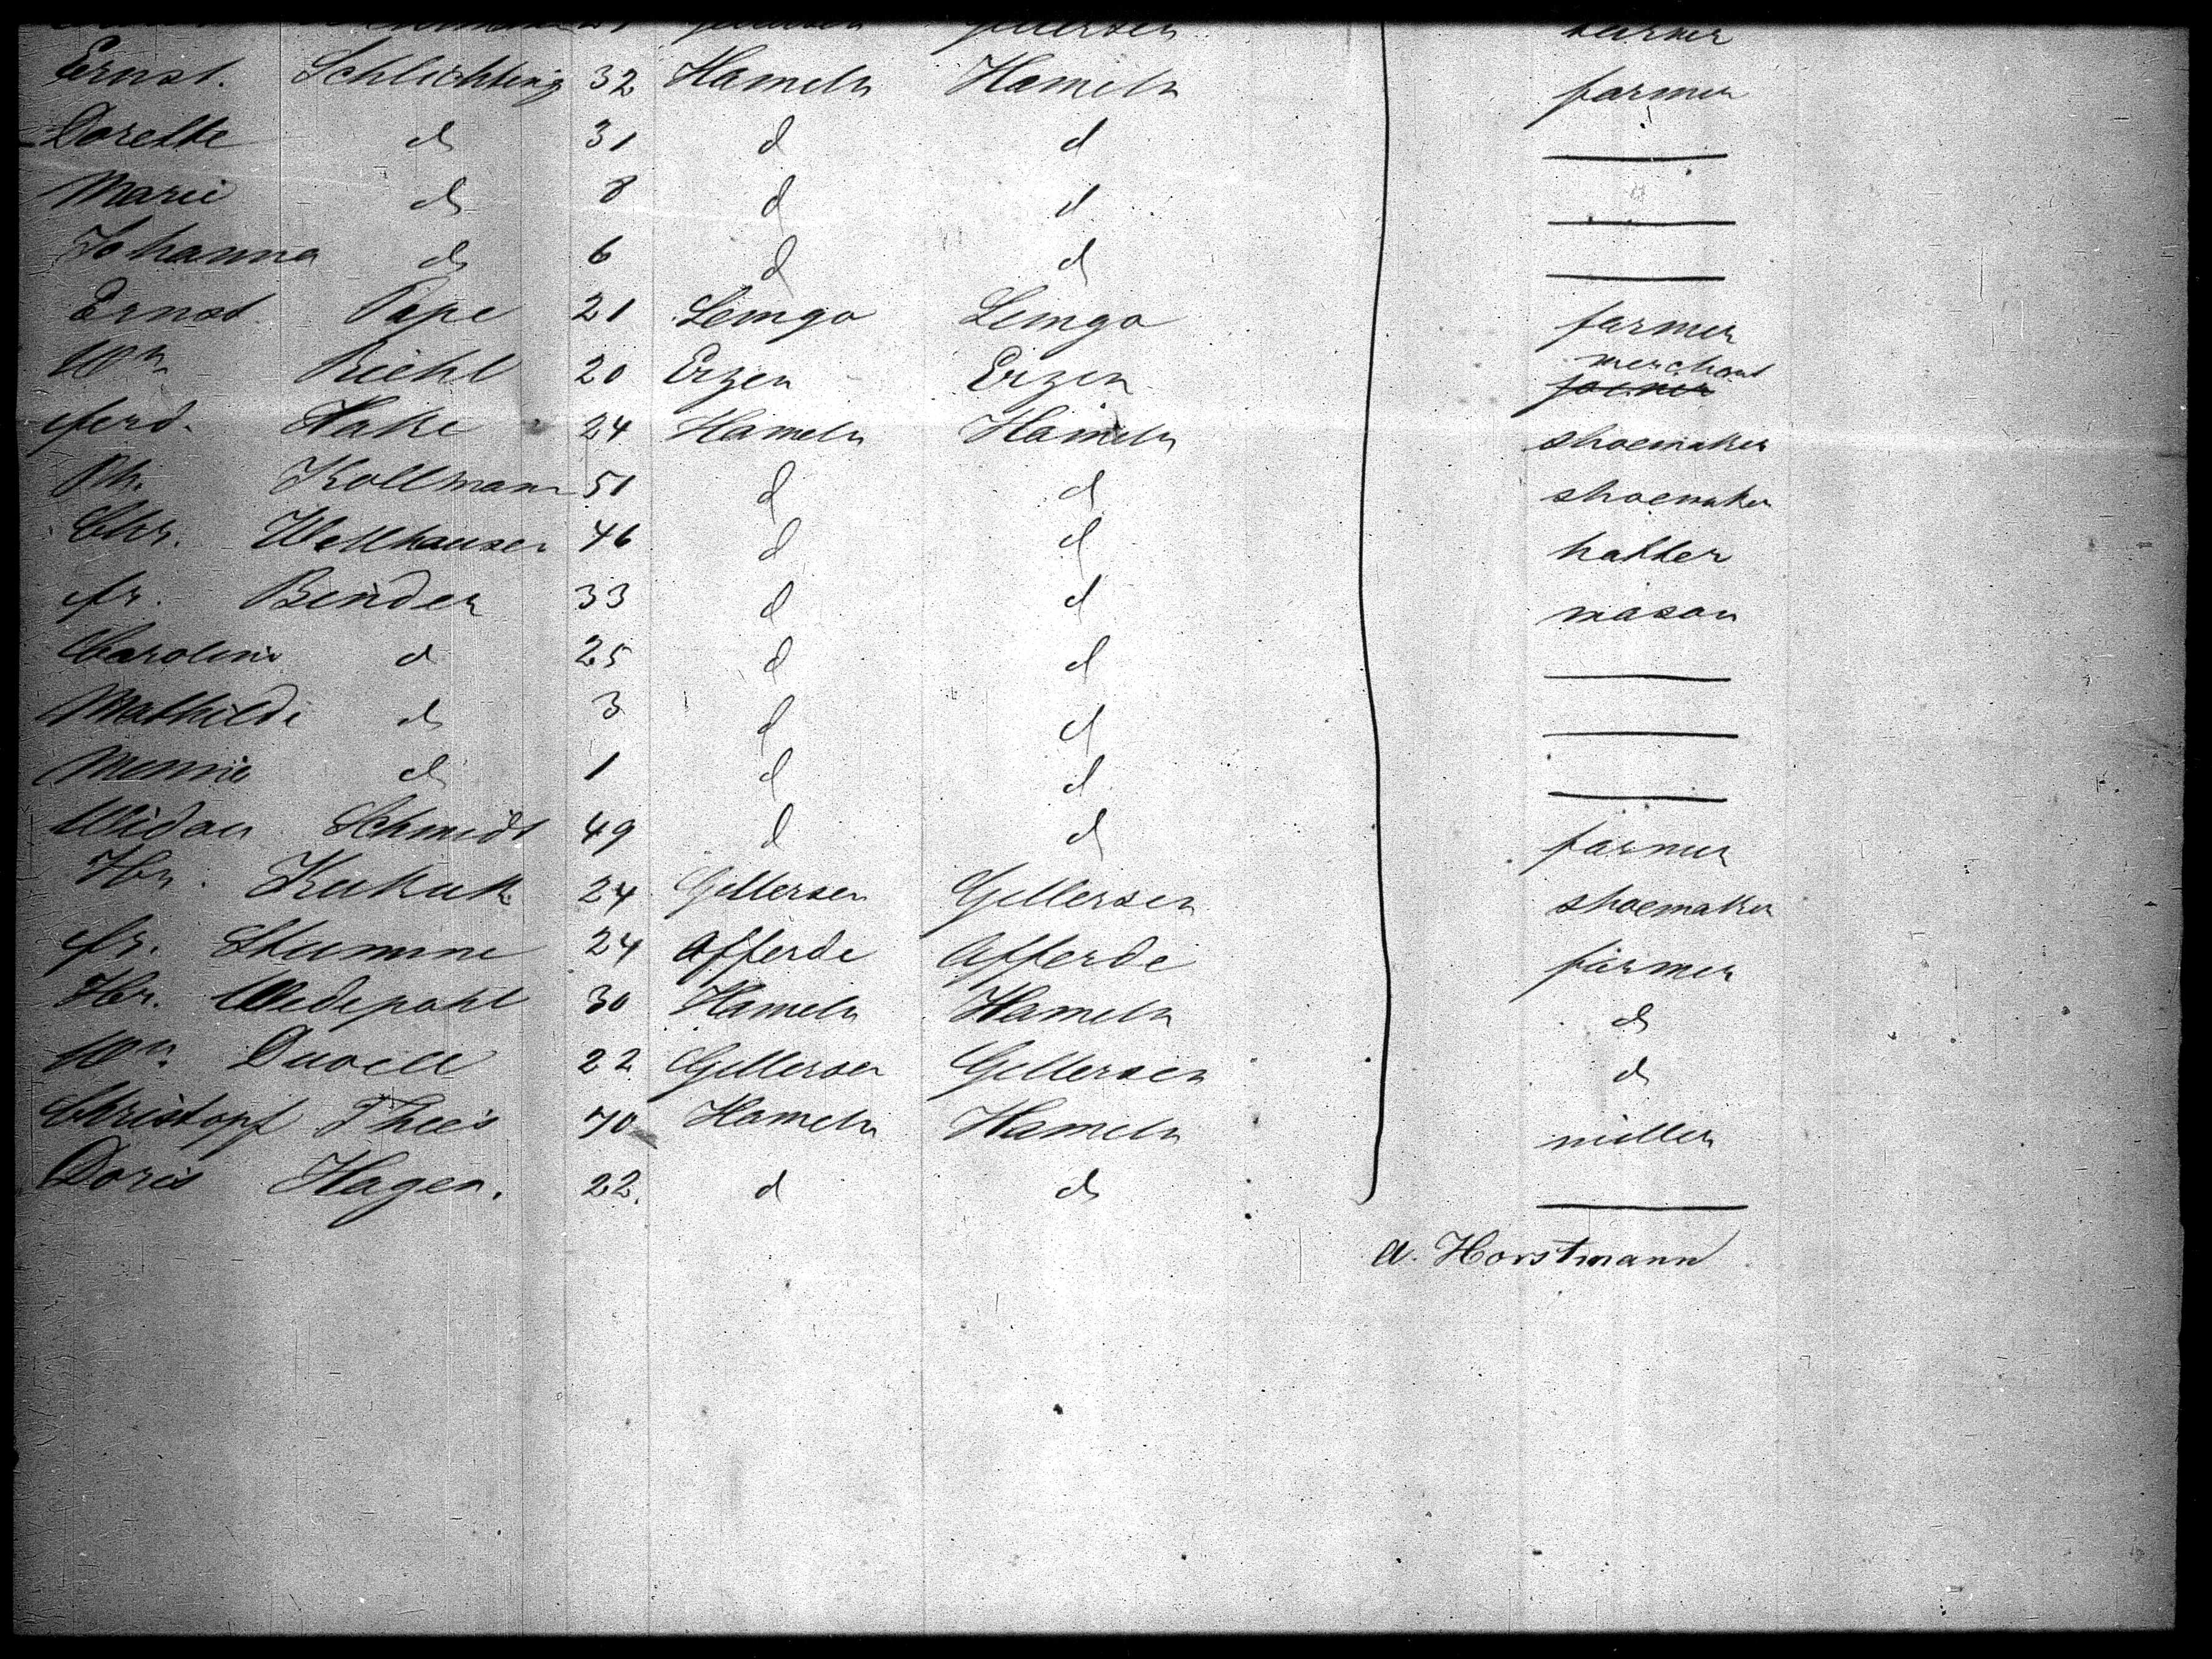 Gellersen farmer
Ernst. Schlichting 32 Hameln Hameln farmer
Dorette do 31 d d —
Marie do 8 d d —
Johanna do 6 d d —
Ernst Pape 21 Lemgo Lemgo farmer
merchant
Wm Riehl 20 Erzen Erzen joiner
Ferd. Hake 24 Hameln Hameln shoemaker
Ph. Kollmann 51 d d shoemaker
Chr. Wellhausen 46 d d hatter
fr. Binder 33 d d mason
Caroline d 25 d d —
Mathilde do 3 d d —
Mennie do 1 d d —
Widow Schmidt 49 d d farmer
Hr. Kukuk 24 Gellersen Gellersen shoemaker
fr. Stumme 24 Afferde Afferde farmer
Hr. Wedepohl 30 Hameln Hameln do
Wm. Duvell 22 Gellersen Gellersen do
Christopf Thies 70 Hameln Hameln miller
Doris Hagen. 22. d do —
A. Horstmann